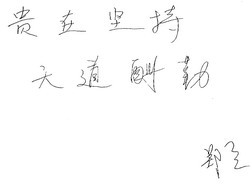 贵在坚持
天道酬勤